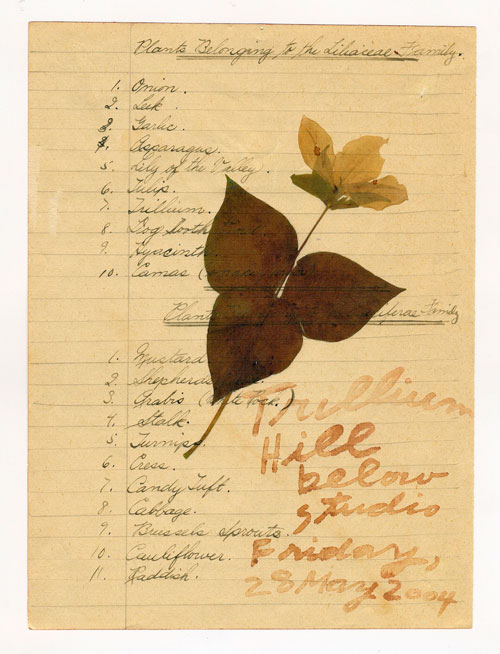 Plants Belonging to the Liliaceae Family.
1. Onion.
2. Leek.
3. Garlic.
4. Asparagus.
5. Lily of the Valley.
6. Tulip.
7. Trillium.
8. Dog tooth
9. Hyacinth.
10. Camas
Plants Family
1. Mustard
2. Shepherds
3. Arabis (
4. Stalk.
5. Turnips.
6. Cress.
7. Candy Tuft.
8. Cabbage.
9. Brussels Sprouts.
10. Cauliflower.
11. Raddish.
Trullium
Hill
below
studio
Friday,
28 May 2004